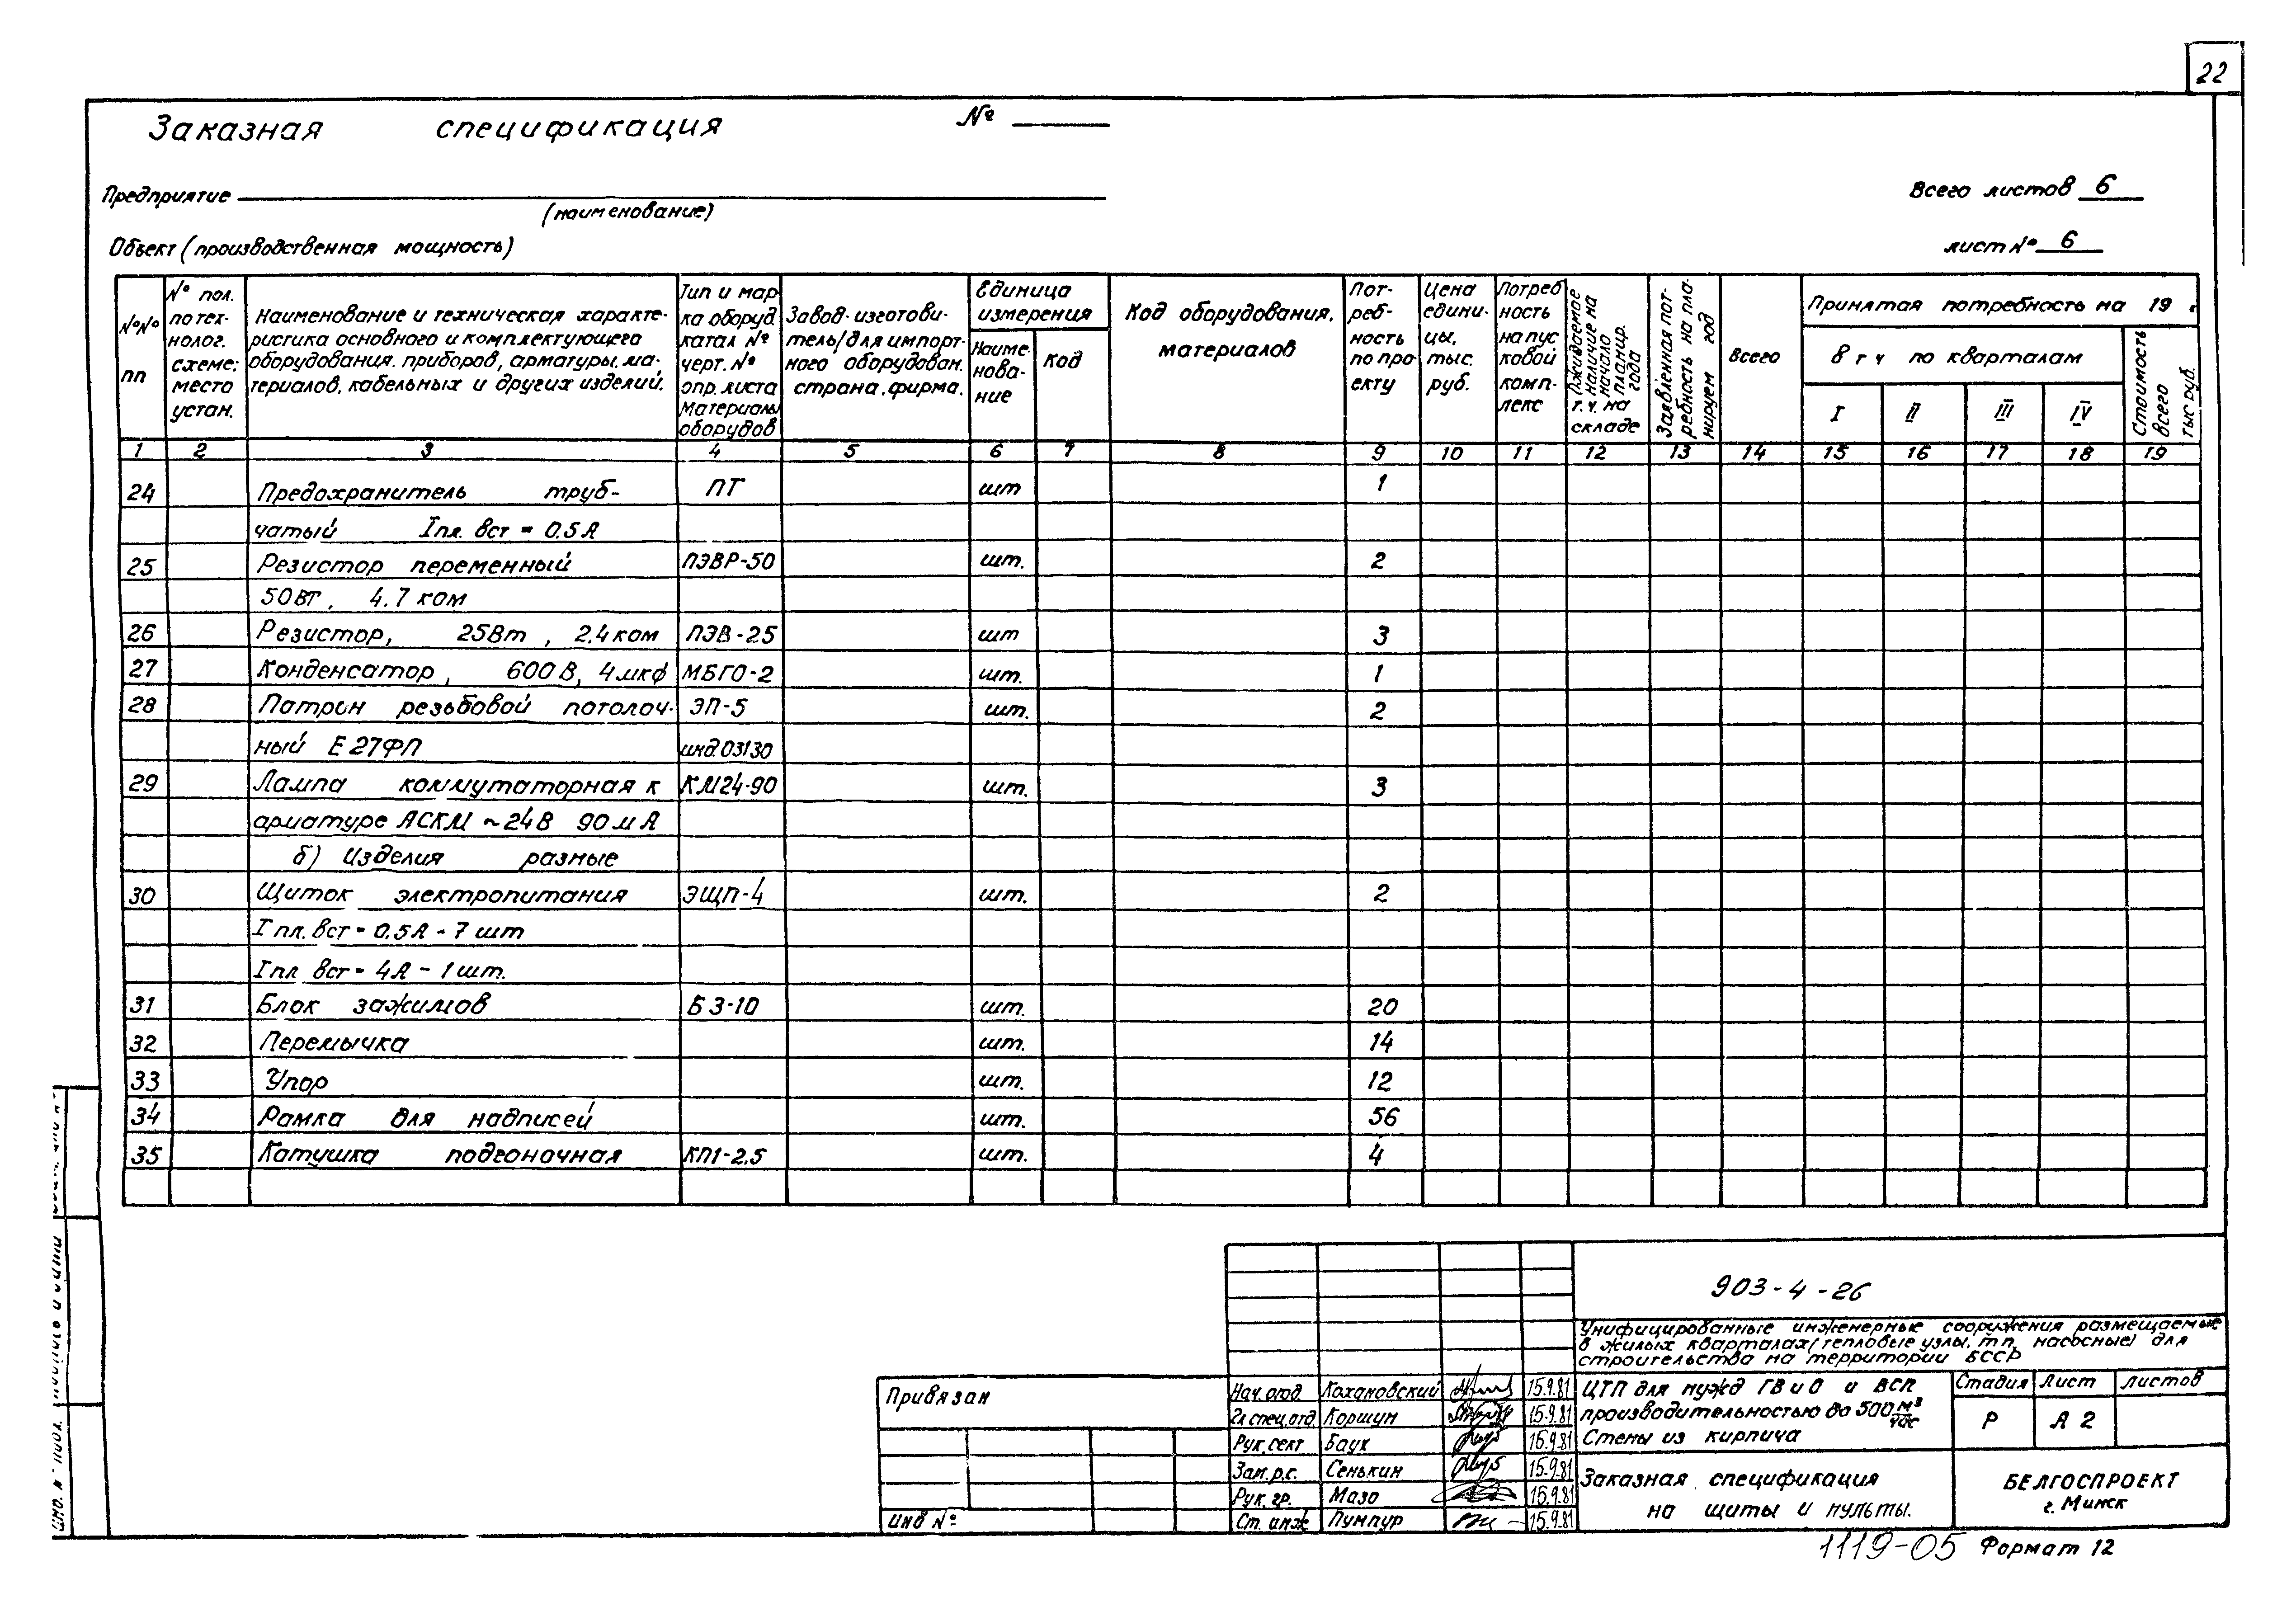 22
Заказная спецификация №
Предприятие
(наименование)
Всего листов 6
Объект (производственная мощность)
лист № 6
№№ пп
№ поз. по тех-нолог. схеме; место устан.
Наименование и техническая характе-
ристика основного и комплектующего
оборудования, приборов, арматуры, ма-
териалов, кабельных и других изделий.
Тип и мар
ка оборуд
катал №
черт. №
опр. листа
Материалы
оборудов
Завод-изготови-
тель/для импорт-
ного оборудован.
страна, фирма.
Единица
измерения
Наиме-
нова-
ние
Код
Код оборудования,
материалов
Пот-
реб-
ность
по про
екту
Цена
едини-
цы,
тыс.
руб.
Потреб
ность
на пус
ковой
комп-
лекс
Ожидаемое
наличие на
начало
планир.
года
т.ч. на
складе
Заявленная пот-
ребность на пла-
нируем год
Всего
Принятая потребность на 19 г
в т ч по кварталам
I II III IV
Стоимость
всего
тыс руб.
1 2 3 4 5 6 7 8 9 10 11 12 13 14 15 16 17 18 19
24 Предохранитель труб- ПТ шт 1
чатый Iпл. вст = 0.5А
25 Резистор переменный ПЭВР-50 шт. 2
50Вт, 4.7 ком
26 Резистор, 25Вт, 2,4 ком ПЭВ-25 шт 3
27 Конденсатор, 600В, 4мкф МБГО-2 шт. 1
28 Патрон резьбовой потолоч- ЭП-5 шт. 2
ный Е27ФП инд.03130
29 Лампа коммутаторная к КМ24-90 шт. 3
арматуре АСКМ ~24В 90мА
б) Изделия разные
30 Щиток электропитания ЭЩП-4 шт. 2
Iпл. вст = 0,5А - 7 шт
Iпл вст = 4А - 1 шт.
31 Блок зажимов БЗ-10 шт. 20
32 Перемычка шт. 14
33 Упор шт. 12
34 Рамка для надписей шт. 56
35 Катушка подгоночная КП1-2,5 шт. 4
903-4-26
Унифицированные инженерные сооружения размещаемые
в жилых кварталах/тепловые узлы, тп, насосные/ для
строительства на территории БССР
Привязан
ИНВ №
Нач. отд. Кохановский 15.9.81
Гл спец.отд. Коршун 15.9.81
Рук. сект Баух 15.9.81
Зам. р.с. Сенькин 15.9.81
Рук. гр. Мазо 15.9.81
Ст. инж Пумпур 15.9.81
ЦТП для нужд ГВ и О и ВСП
производительностью до 500 м³/час
Стены из кирпича
Стадия Лист Листов
Р А 2
Заказная спецификация
на щиты и пульты.
БЕЛГОСПРОЕКТ
г. Минск
1119-05 Формат 12